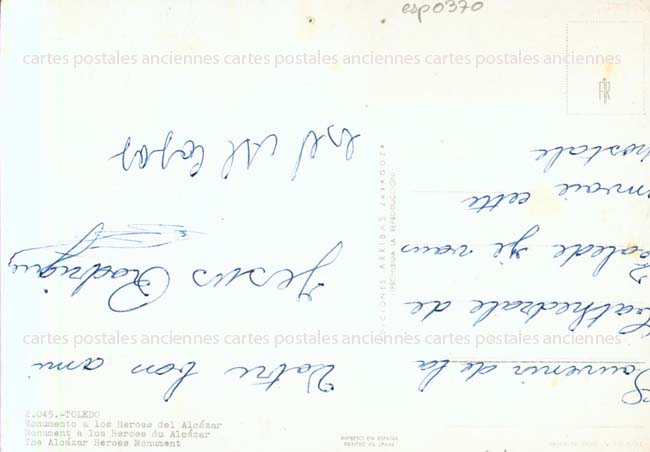 esp0370
cartes postales anciennes cartes postales anciennes cartes postales anciennes
Souvenir de la
Cathedrale de
Tolede Je vous
envoie cette
postale
Votre bon ami
Jesus Rodrigue
EDICIONES ARRIBAS ZARAGOZA
PROHIBIDA LA REPRODUCCION
cartes postales anciennes cartes postales anciennes cartes postales anciennes
2.045.-TOLEDO
Monumento a los Heroes del Alcázar
Monument a los Heroes du Alcázar
The Alcázar Heroes Monument
IMPRESO EN ESPAÑA
PRINTED IN SPAIN